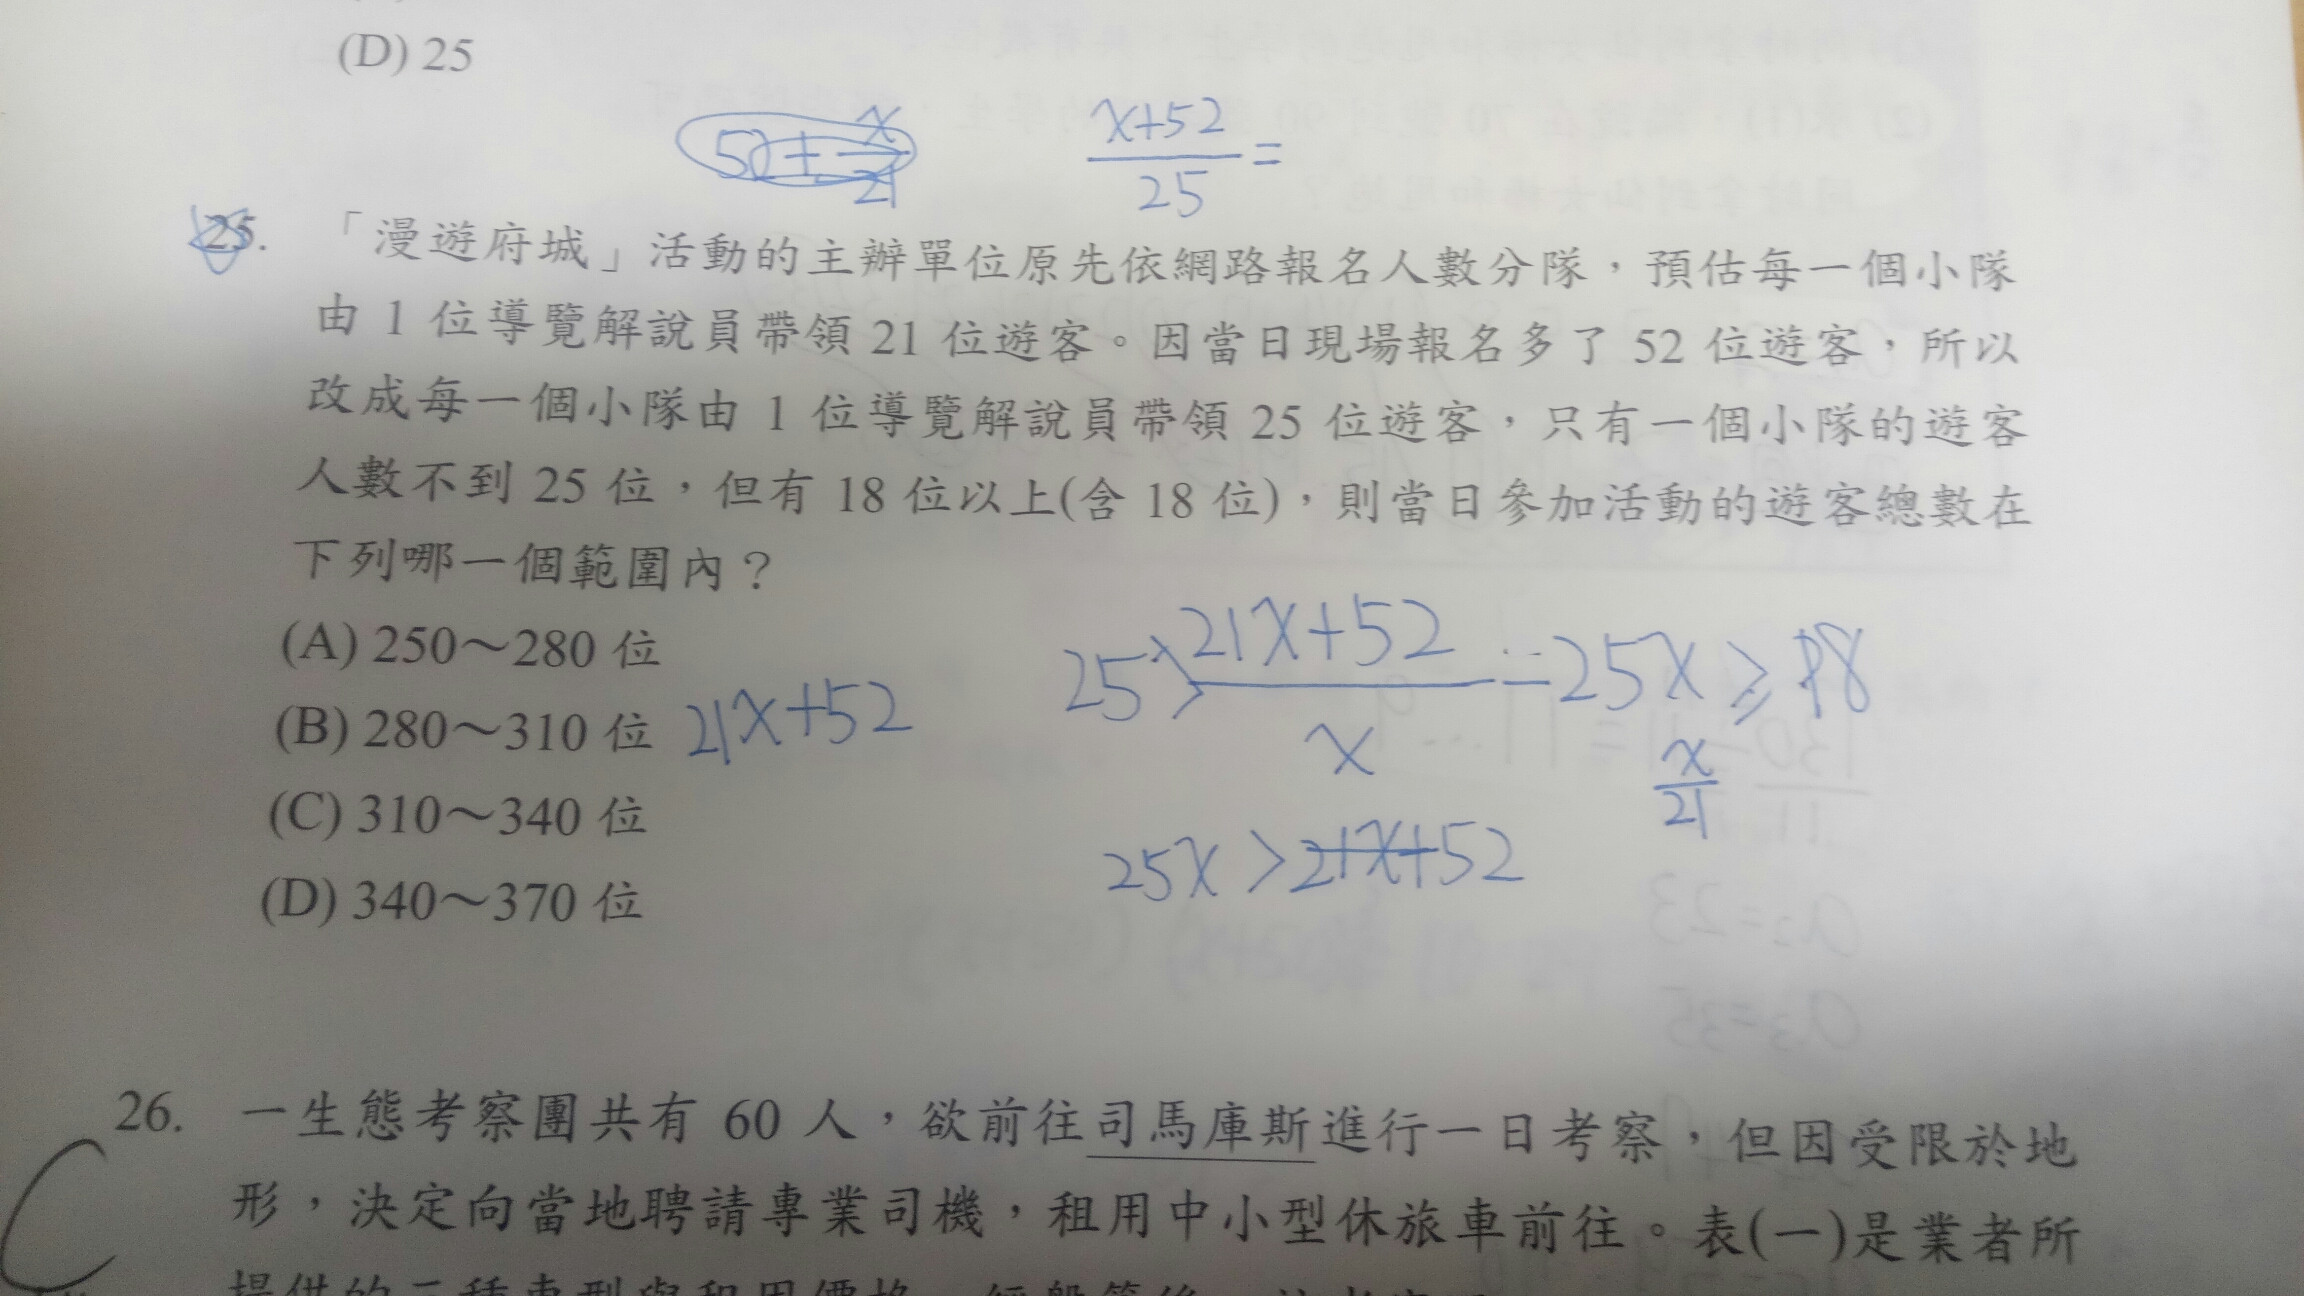 (D) 25
52+x/21
x+52/25=
25. 「漫遊府城」活動的主辦單位原先依網路報名人數分隊，預估每一個小隊
由 1 位導覽解說員帶領 21 位遊客。因當日現場報名多了 52 位遊客，所以
改成每一個小隊由 1 位導覽解說員帶領 25 位遊客，只有一個小隊的遊客
人數不到 25 位，但有 18 位以上(含 18 位)，則當日參加活動的遊客總數在
下列哪一個範圍內？
(A) 250～280 位
(B) 280～310 位
(C) 310～340 位
(D) 340～370 位
21x+52
25>21x+52/x-25x≥18
x/21
25x>21x+52
26. 一生態考察團共有 60 人，欲前往司馬庫斯進行一日考察，但因受限於地
形，決定向當地聘請專業司機，租用中小型休旅車前往。表(一)是業者所